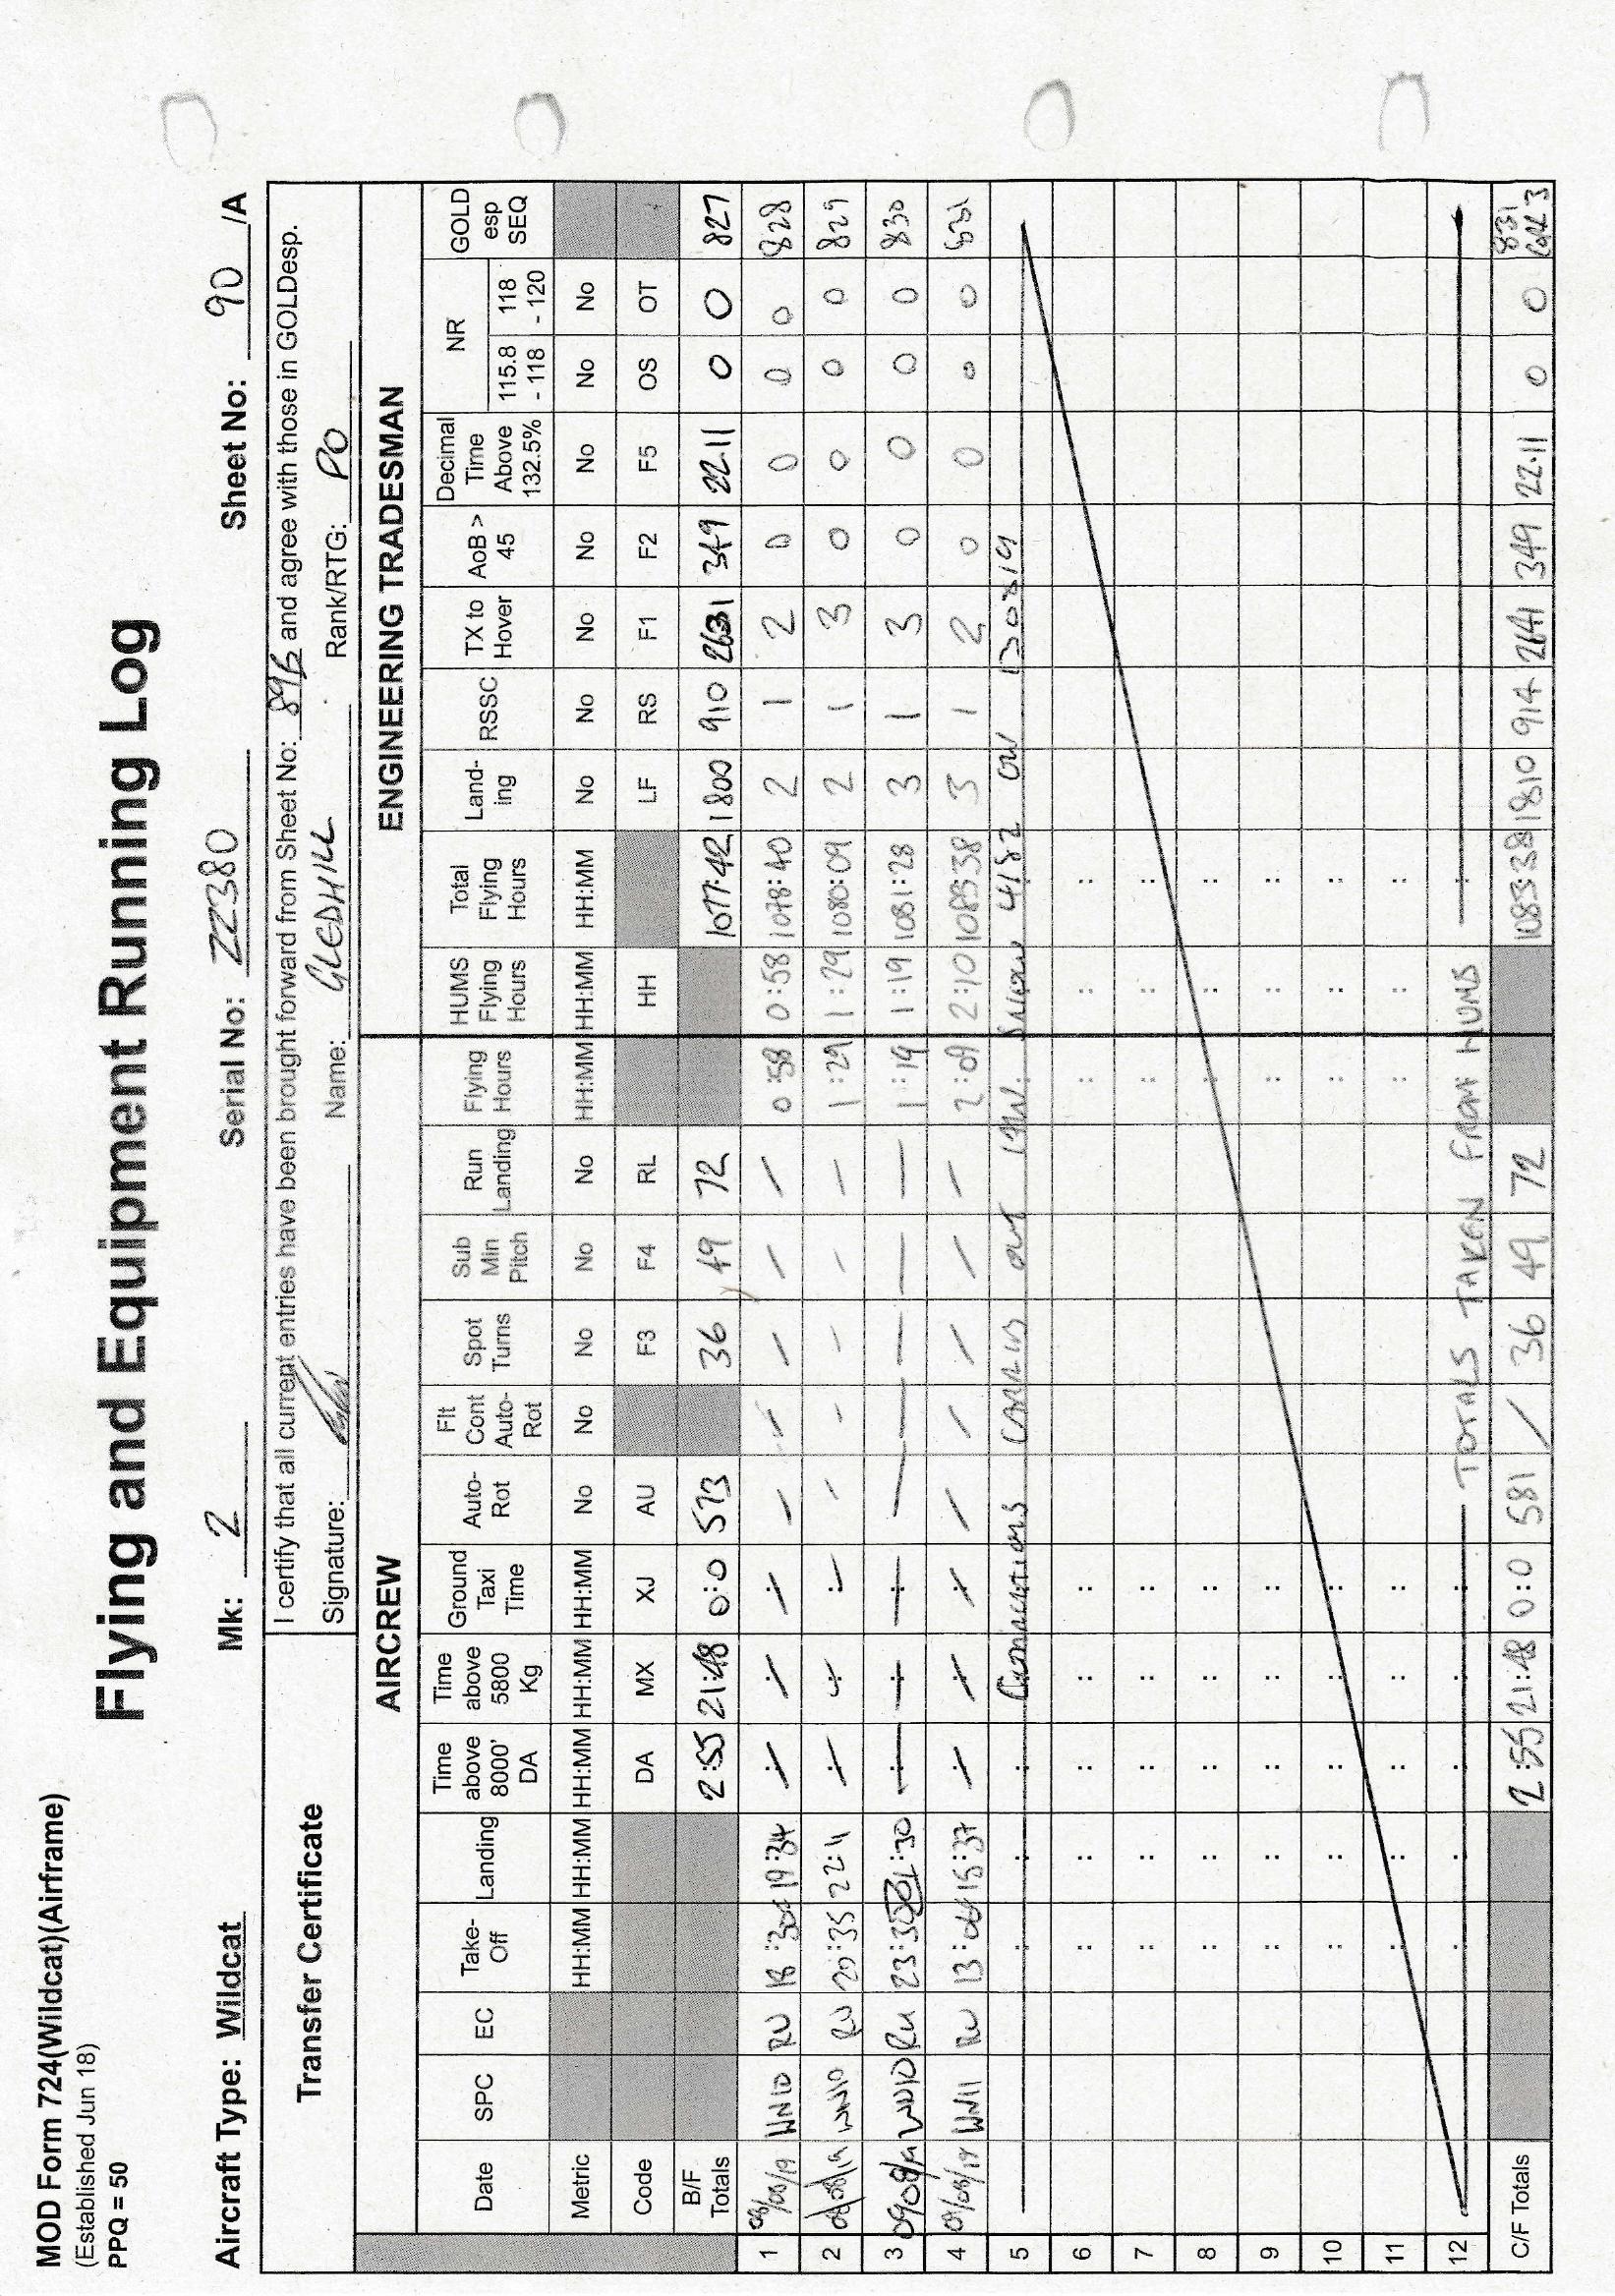 MOD Form 724(Wildcat)(Airframe)
(Established Jun 18)
PPQ = 50
Flying and Equipment Running Log
Aircraft Type: Wildcat Mk: 2 Serial No: ZZ380 Sheet No: 90 /A
Transfer Certificate
I certify that all current entries have been brought forward from Sheet No: 89b and agree with those in GOLDesp.
Signature: Name: GLEDHILL Rank/RTG: PO
AIRCREW ENGINEERING TRADESMAN
Date SPC EC Take-Off Landing Time above 8000' DA Time above 5800 Kg Ground Taxi Time Auto-Rot Flt Cont Auto-Rot Spot Turns Sub Min Pitch Run Landing Flying Hours HUMS Flying Hours Total Flying Hours Land-ing RSSC TX to Hover AoB > 45 Decimal Time Above 132.5% NR 115.8 - 118 118 - 120 GOLD esp SEQ
Metric HH:MM HH:MM HH:MM HH:MM HH:MM No No No No No HH:MM HH:MM HH:MM No No No No No No No
Code DA MX XJ AU F3 F4 RL HH LF RS F1 F2 F5 OS OT
B/F Totals 2:55 21:48 0:0 573 36 49 72 1077:42 1800 910 2631 349 22.11 0 0 827
1 08/08/19 WN10 RU 18:30 19:34 / / / / / / / / 0:58 0:58 1078:40 2 1 2 0 0 0 0 828
2 08/08/19 WN10 RU 20:35 22:11 - - - - - - - - 1:29 1:29 1080:09 2 1 3 0 0 0 0 829
3 090819 WN10 RU 23:30 01:30 - - - - - - - - 1:19 1:19 1081:28 3 1 3 0 0 0 0 830
4 09/08/19 WN11 RU 13:04 15:37 / / / / / / / / 2:09 2:10 1083:38 3 1 2 0 0 0 0 831
5 Corrections carried out SNOW 4182 on 130819
6
7
8
9
10
11
12 TOTALS TAKEN FROM HUMS
C/F Totals 2:55 21:48 0:0 581 / 36 49 72 1083:38 1810 914 2641 349 22.11 0 0 831